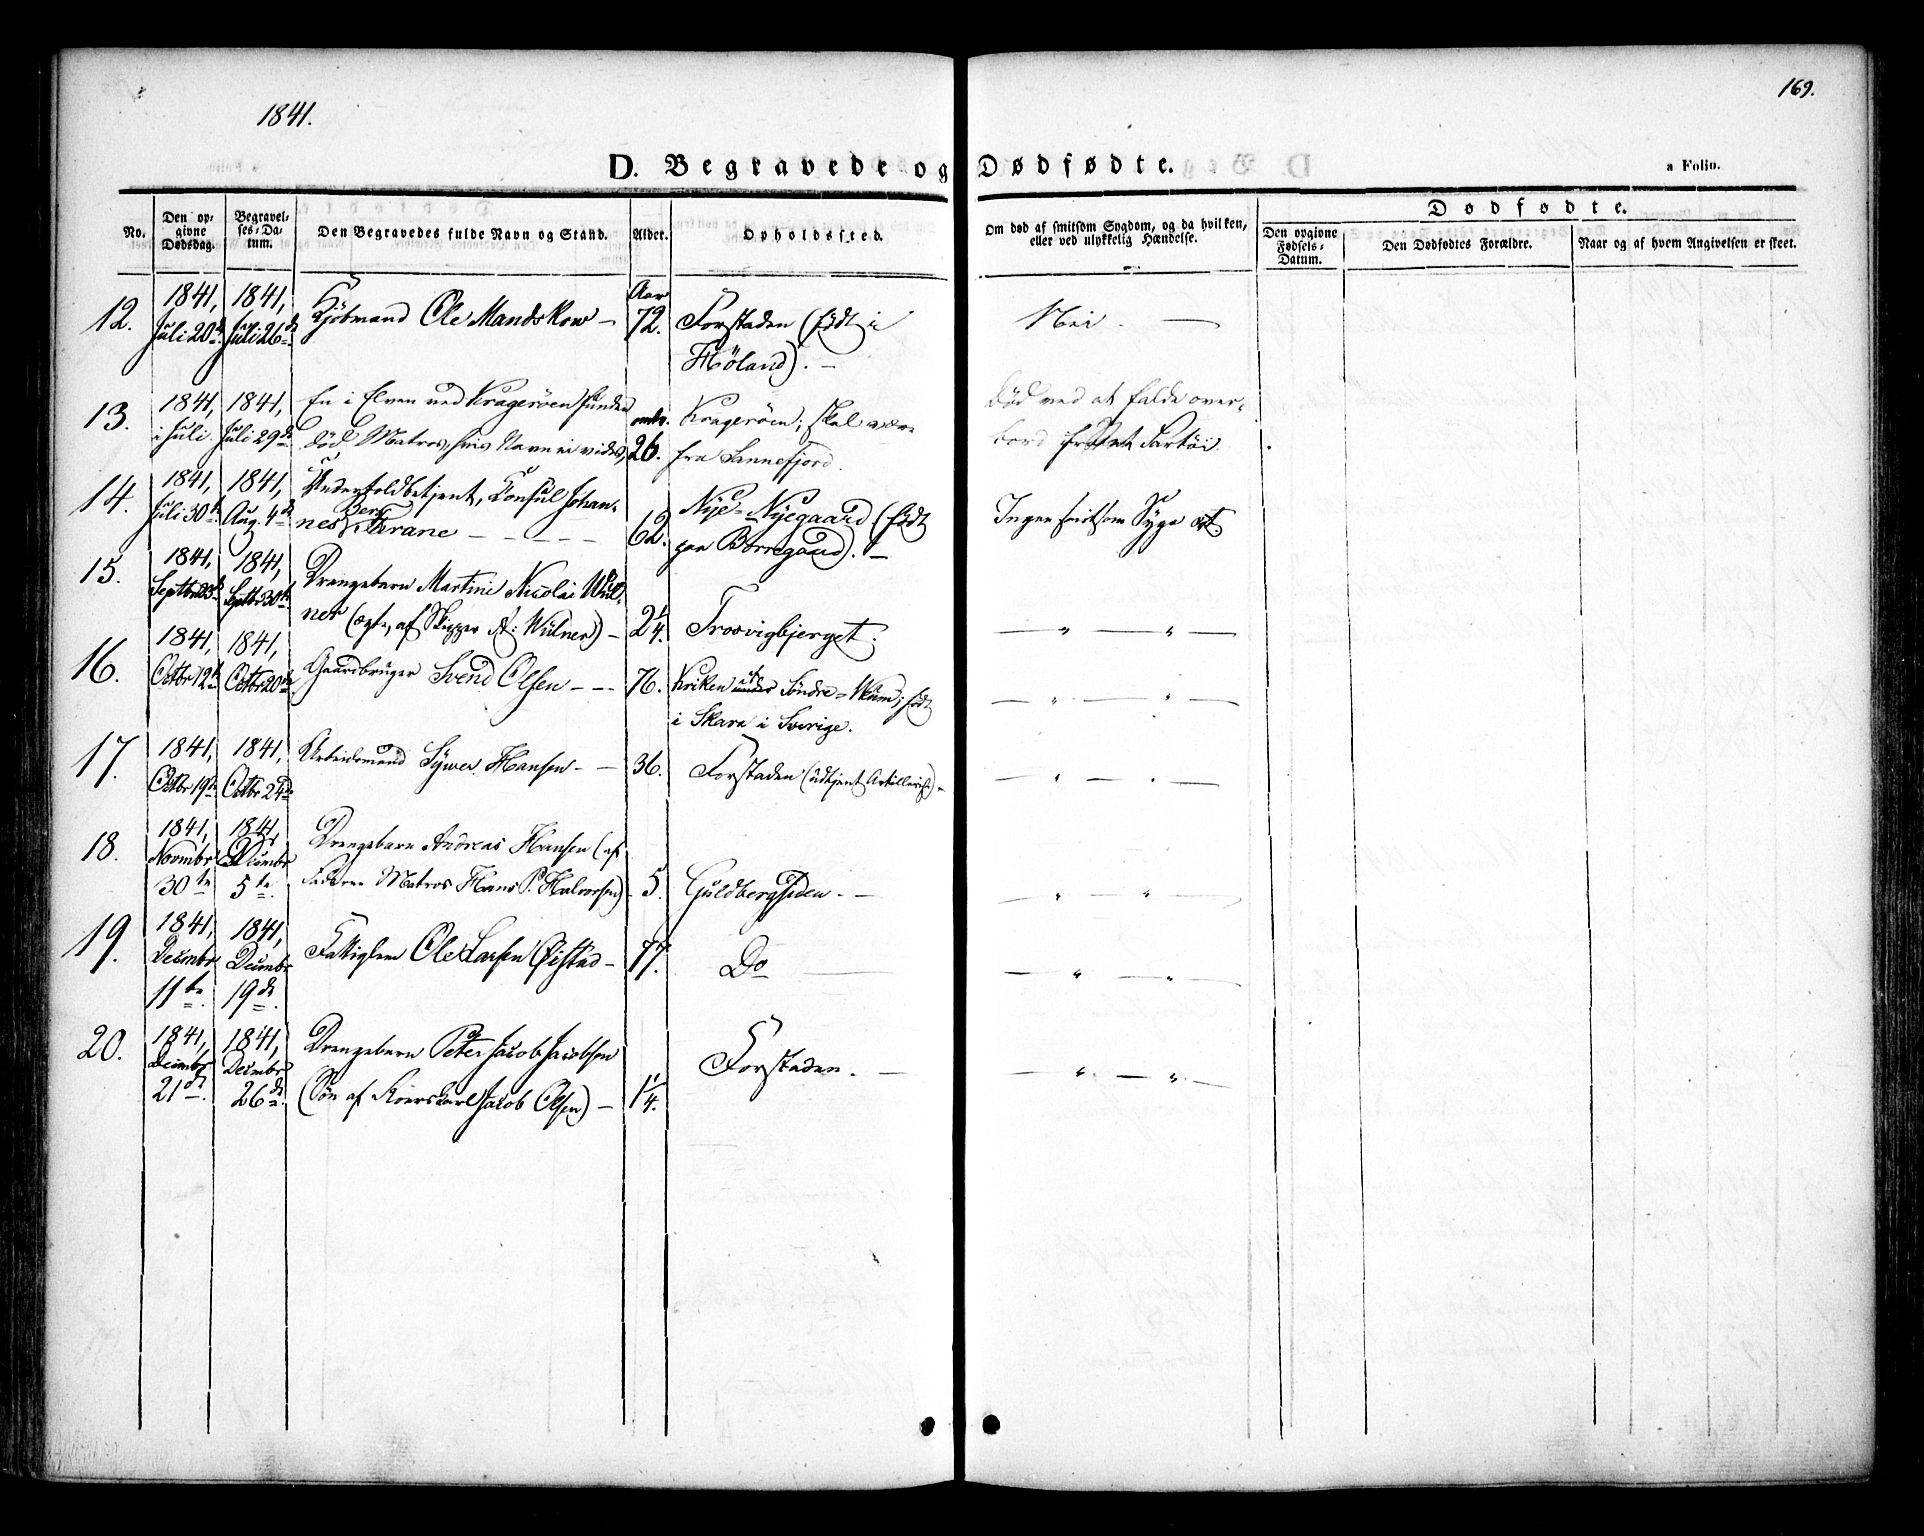 1841.
169.
D. Begravede og Dødfødte.
a Folio.
No.
Den op-
givne
Dødsdag.
Begravel-
ses-Da-
tum.
Den Begravedes fulde Navn og Stand.
Alder.
Opholdssted.
Om død af smitsom Sygdom, og da hvilken,
eller ved ulykkelig Hændelse.
Dødfødte.
Den opgivne
Fødsels-
Datum.
Den Dødfødtes Forældre.
Naar og af hvem Angivelsen er skeet.
12. 1841, Juli 20de 1841, Juli 26de Kjöbmand Ole Mandskow – Aar 72. Forstaden (født i
Höland). –
Nei. —
13. 1841, i Juli. 1841, Juli 29de En i Elven ved Kragerøen funden
död Matros, hvis Navn ei vides, omtr. 26. Kragerøen; skal være
fra Sannefjord.
död ved at falde over-
bord fra et Fartöi.
14. 1841, Juli 30te 1841, Aug. 4de Undertoldbetjent, Konsul Johan-
nes Krane – – – – – 62. Nye-Nyegaard (født
paa Borregaard). –
Ingen smitsom Syge
15. 1841, Septbr 23de 1841, Septbr 30te Drengebarn Martini Nicolai Wül-
ner (ægte, af Skipper A: Wülner) – 2¼. Trosvigbjerget.
— „ — „ —
16. 1841, Octbr 12te 1841, Octbr 20de Gaardbruger Svend Olsen – – – 76. Kriken under Söndre-Kum; født
i Skara i Sverige.
— „ — „ —
17. 1841, Octbr 19de 1841, Octbr 24de Arbeidsmand Syver Hansen – – 36. Forstaden (udtjent Artillerist) –
— „ — „ —
18. 1841, Novembr 30te 1841, Decembr 5te. Drengebarn Andreas Hansen (af
Matros Hans P. Halvorsen) – 5. Guldbergsiden. –
— „ — „ —
19. 1841, Decembr 11te 1841, Decembr 19de. Fattiglem Ole Larsen Öistad – 77. Do —
— „ — „ —
20. 1841, Decembr 21de. 1841, Decembr 26de. Drengebarn Peter Jacob Jacobsen
(Søn af Jacob Olsen) – 1¼. Forstaden. —
— „ — „ —